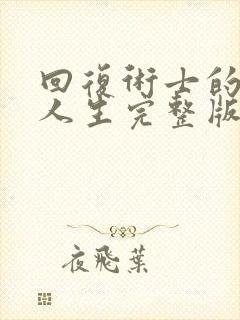 回復術士的
人生完整版
夜飛葉